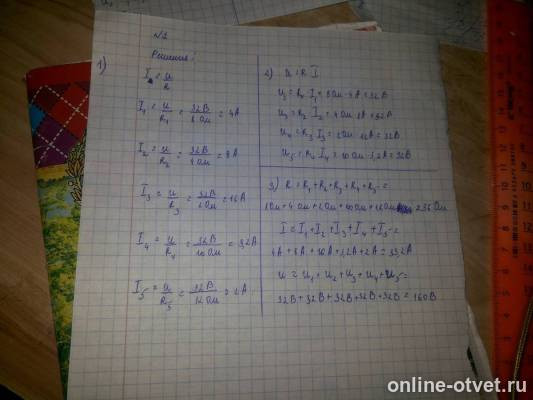 №2
Решение:
1)
I = u/R
I₁ = u/R₁ = 32В/8Ом = 4А
I₂ = u/R₂ = 32В/4Ом = 8А
I₃ = u/R₃ = 32В/2Ом = 16А
I₄ = u/R₄ = 32В/10Ом = 3,2А
I₅ = u/R₅ = 32В/12Ом = 2А
2) u = R I
I₁ = 8Ом · 4А = 32В
I₂ = 4Ом · 8А = 32В
u₄ = R₃ I₃ = 2Ом · 16А = 32В
u₅ = R₄ I₄ = 10Ом · 3,2А = 32В
3) R = R₁ + R₂ + R₃ + R₄ + R₅ =
8Ом + 4Ом + 2Ом + 10Ом + 12Ом
I = I₁ + I₂ + I₃ + I₄ + I₅ =
4А + 8А + 3,2А + 2А = 33,2А
u = u₁ + u₂ + u₃ + u₄ + u₅ =
32В + 32В + 32В + 32В + 32В = 160В
online-otvet.ru